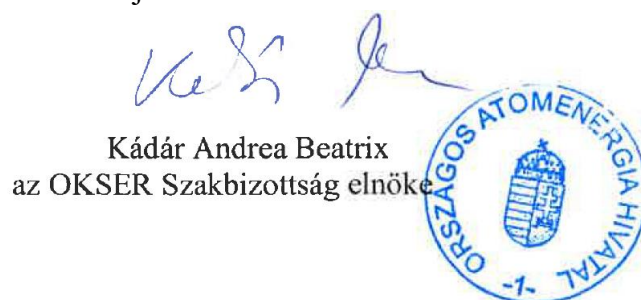 Kádár Andrea Beatrix
az OKSER Szakbizottság elnöke
ORSZÁGOS ATOMENERGIA HIVATAL
-1-